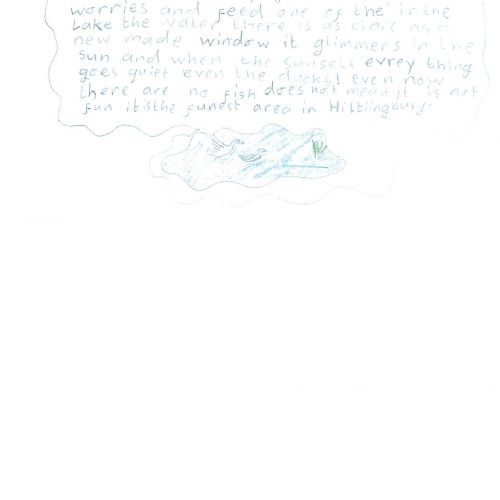 worries and feed one of the in the
Lake the water there is as clare as a
new made window it glimmers in the
sun and when the sunsets evrey thing
goes quiet even the ducks! even now
there are no fish does not mean it is not
fun it is the funest area in Hiltingbury.